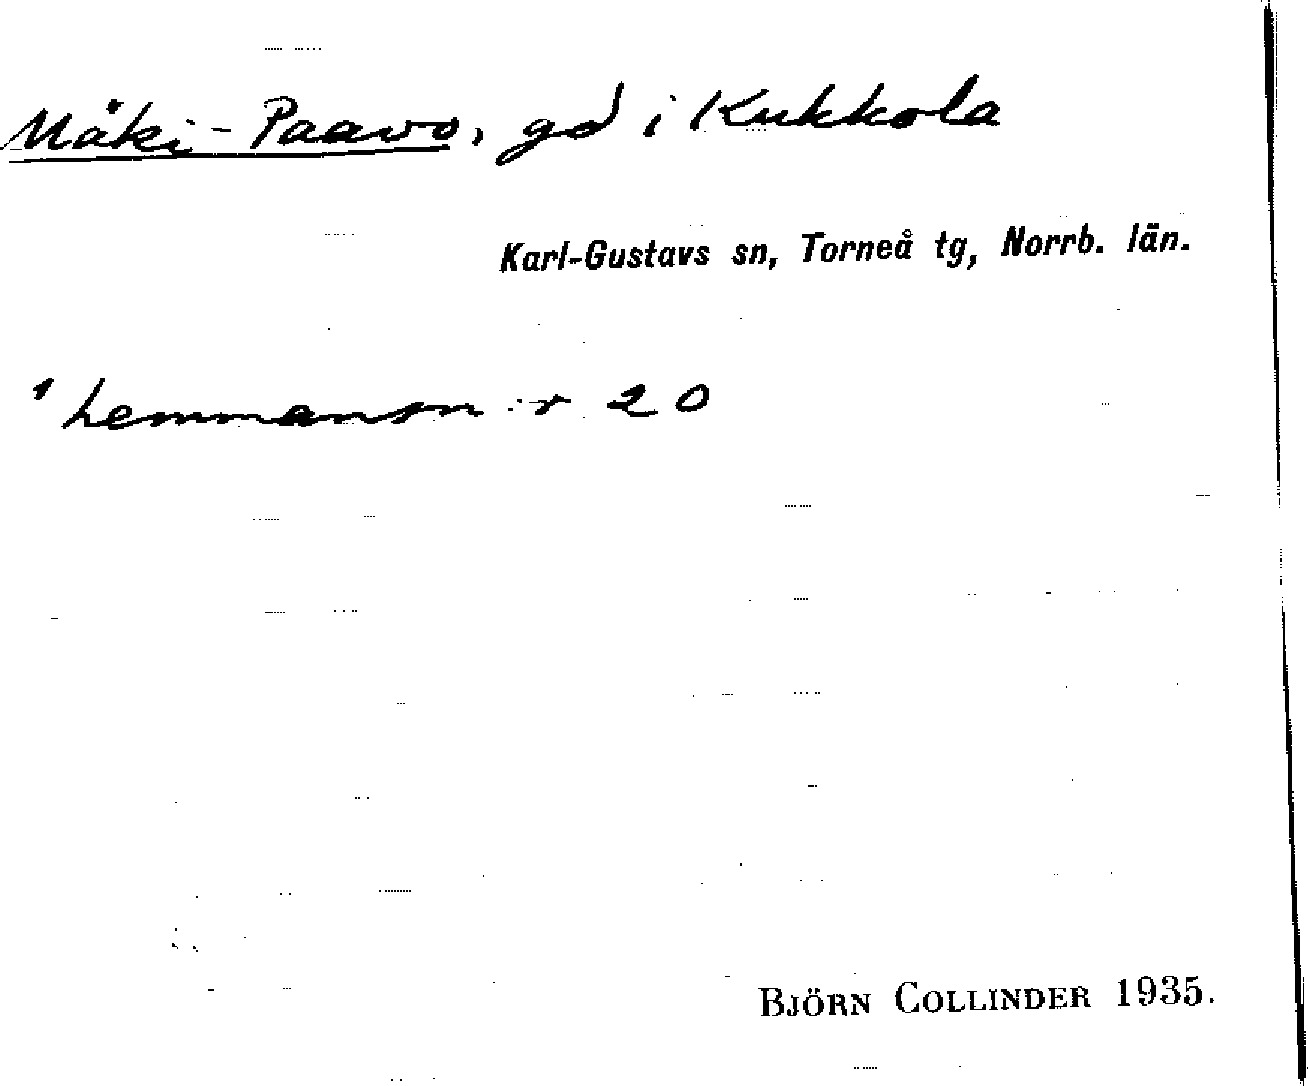 Mäki-Paavo, gd i Kukkola
Karl-Gustavs sn, Torneå tg, Norrb. län.
hemmansnr 20
BJÖRN COLLINDER 1935.